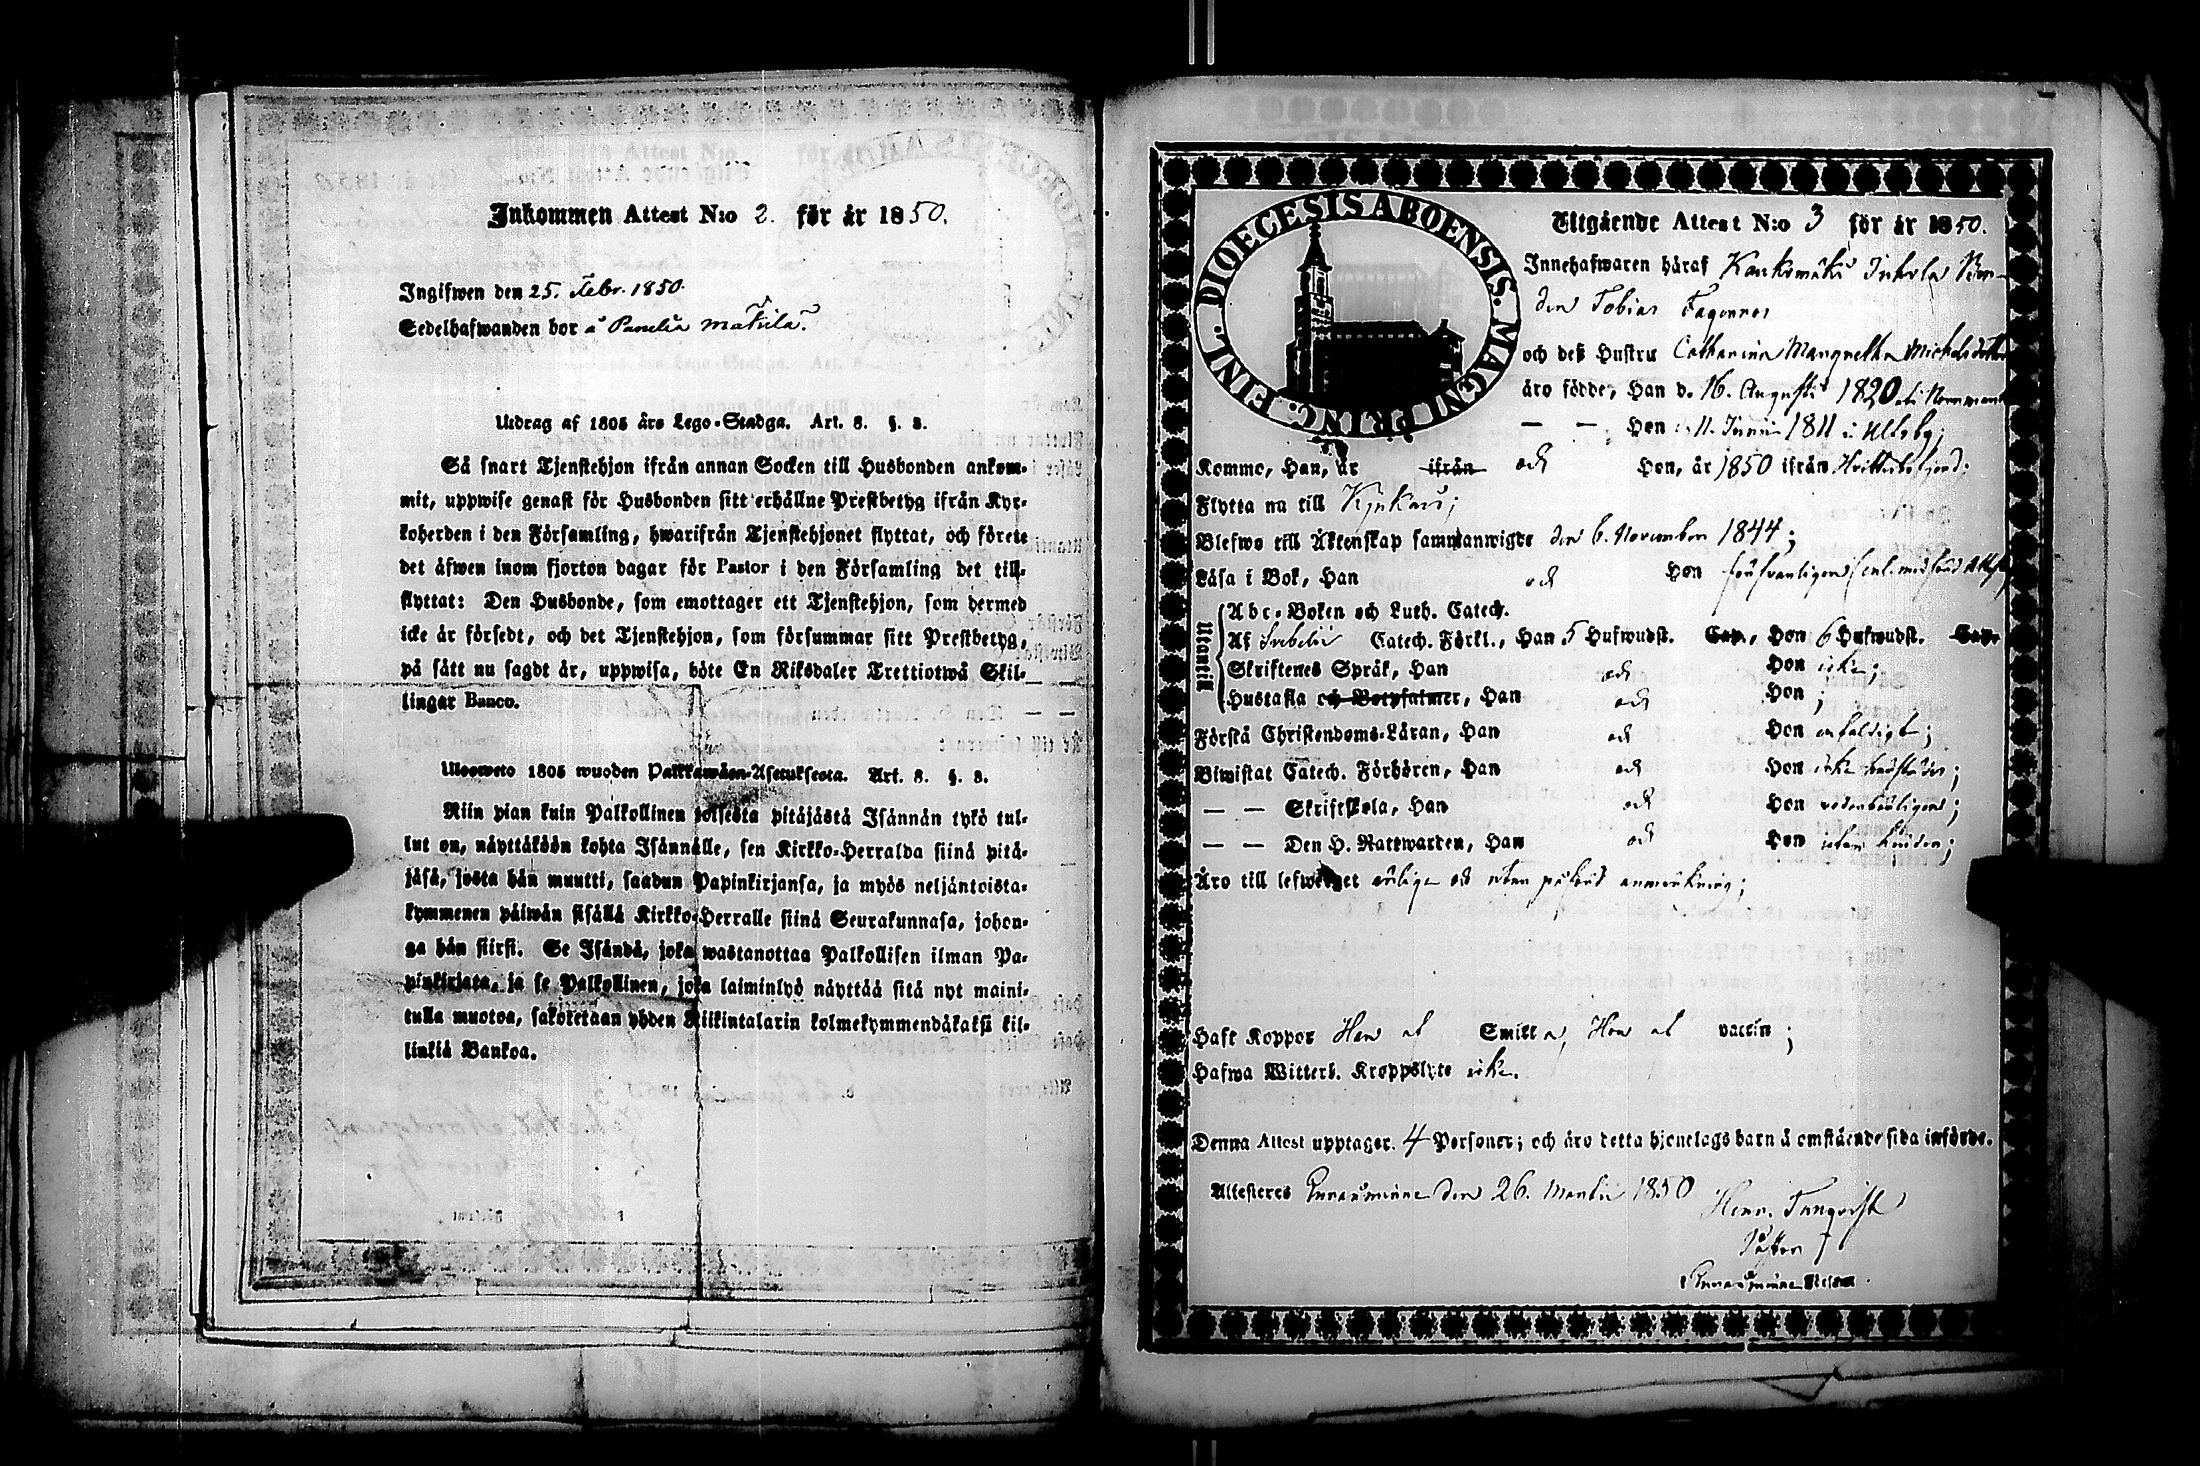 Inkommen Attest N:o 2. för år 1850.
Ingifwen den 25. Febr. 1850.
Sedelhafwanden bor å Panelia Mattila.
Utdrag af 1805 års Lego-Stadga. Art. 8. §. 8.
Så snart Tjenstehjon ifrån annan Socken till Husbonden ankom-
mit, uppwise genast för Husbonden sitt erhållne Prestbetyg ifrån Kyr-
koherden i den Församling, hwarifrån Tjenstehjonet flyttat, och förete
det äfwen inom fjorton dagar för Pastor i den Församling det till-
flyttat: Den Husbonde, som emottager ett Tjenstehjon, som dermed
icke är försedt, och det Tjenstehjon, som försummar sitt Prestbetyg,
på sätt nu sagdt är, uppwisa, böte En Riksdaler Trettiotwå Skil-
lingar Banco.
Ulosweto 1805 wuoden Palkkawäen-Asetuksesta. Art. 8. §. 8.
Niin pian kuin Palkollinen toisesta pitäjästä Isännän tykö tul-
lut on, näyttäköön kohta Isännälle, sen Kirkko-Herralda siinä pitä-
jäsä, josta hän muutti, saadun Papinkirjansa, ja myös neljäntoista-
kymmenen päiwän sisällä Kirkko-Herralle siinä Seurakunnasa, johon-
ga hän siirsi. Se Isändä, joka wastanottaa Palkollisen ilman Pa-
pinkirjata, ja se Palkollinen, joka laiminlyö näyttää sitä nyt maini-
tulla muotoa, sakotetaan yhden Riikintalarin kolmekymmendäkaksi kil-
linkiä Bankoa.
DIOECESIS ABOENSIS. MAGNI PRINC. FINL.
Utgående Attest N:o 3 för år 1850.
Innehafwaren häraf Kaukomäki Inkola Bon-
den Tobias
och deß Hustru Catharina Margretha Michelsdotter
äro födde, Han d. 16. Augusti 1820
— — Hon d. 11. Junii 1811 i Ulfsby;
Komme, Han, år ifrån och Hon, år 1850 ifrån Hvittisbofjerd;
Flytta nu till Kjukais;
Blefwo till Äktenskap sammanwigde den 6. November 1844;
Läsa i Bok, Han och Hon
Utantill
Abc-Boken och Luth. Catech.
Af Svebelii Catech. Förkl., Han 5 Hufwudst. Cap., Hon 6 Hufwudst. Cap.
Skriftenes Språk, Han och Hon icke;
Hustafla och Botpsalmer, Han och Hon ;
Förstå Christendoms-Läran, Han och Hon enfaldigt;
Biwistat Catech. Förhören, Han och Hon icke
— — Skriftskola, Han och Hon vederbörligen;
— — Den H. Nattwarden, Han och Hon
Äro till lefwernet ärlige och utan anmärkning;
Haft Koppor Han af Smitta, Hon af vaccin;
Hafwa Witterl. Kroppslyte icke.
Denna Attest upptager 4 Personer; och äro detta hjonelags barn å omstående sida införde.
Attesteras Norrmark den 26. Martii 1850
Pastor